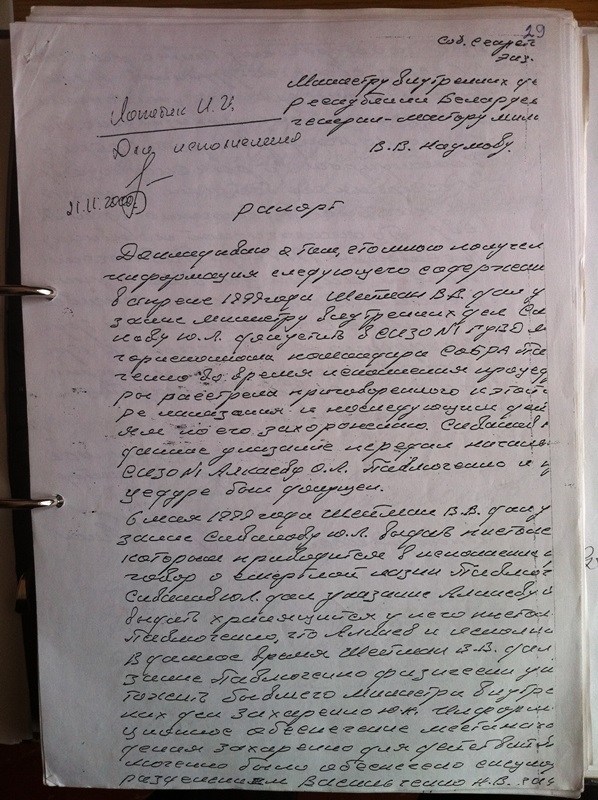 29
Сов. секрет
Экз.
Министру внутренних де
республики Беларусь
генерал-майору мили
В.В. Наумову.
Лопатик И.И.
Для исполнения
21.11.2000
рапорт
Докладываю о том, что мною получен
информация следующего содержани
в апреле 1999 года Шейман В.В. дал у
зание министру внутренних дел Си
кову Ю.Л. допустить в СИЗО №1 ГУВД М
горисполкома командира СОБРА Пав
ченко во время исполнения процед
ры расстрела приговоренного к этой
ре наказания и последующим дей
ям по его захоронению. Сиваков
данное указание передал началь
СИЗО №1 Алкаеву О.Л. Павлюченко к п
цедуре был допущен.
6 мая 1999 года Шейман В.В. дал у
зание Сивакову Ю.Л. выдать пистоле
которым приводится в исполнение
говор о смертной казни Павлюч
Сиваков Ю.Л. дал указание Алкаеву
выдать хранящийся у него пистол
Павлюченко, что Алкаев и исполни
В данное время Шейман В.В. дал
зание Павлюченко физически ун
тожить бывшего министра внутре
них дел Захаренко Ю.Н. Информ
ционное обеспечение местонахо
дения Захаренко для действий
люченко было обеспечено спецпод
разделением Васильченко Н.В.